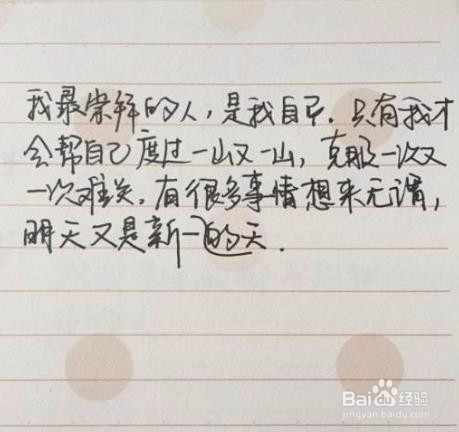 我最崇拜的人，是我自己.只有我才
会帮自己度过一山又一山，克服一次又
一次难关。有很多事情想来无谓，
明天又是新一的天.
Baidu经验
jingyan.baidu.com